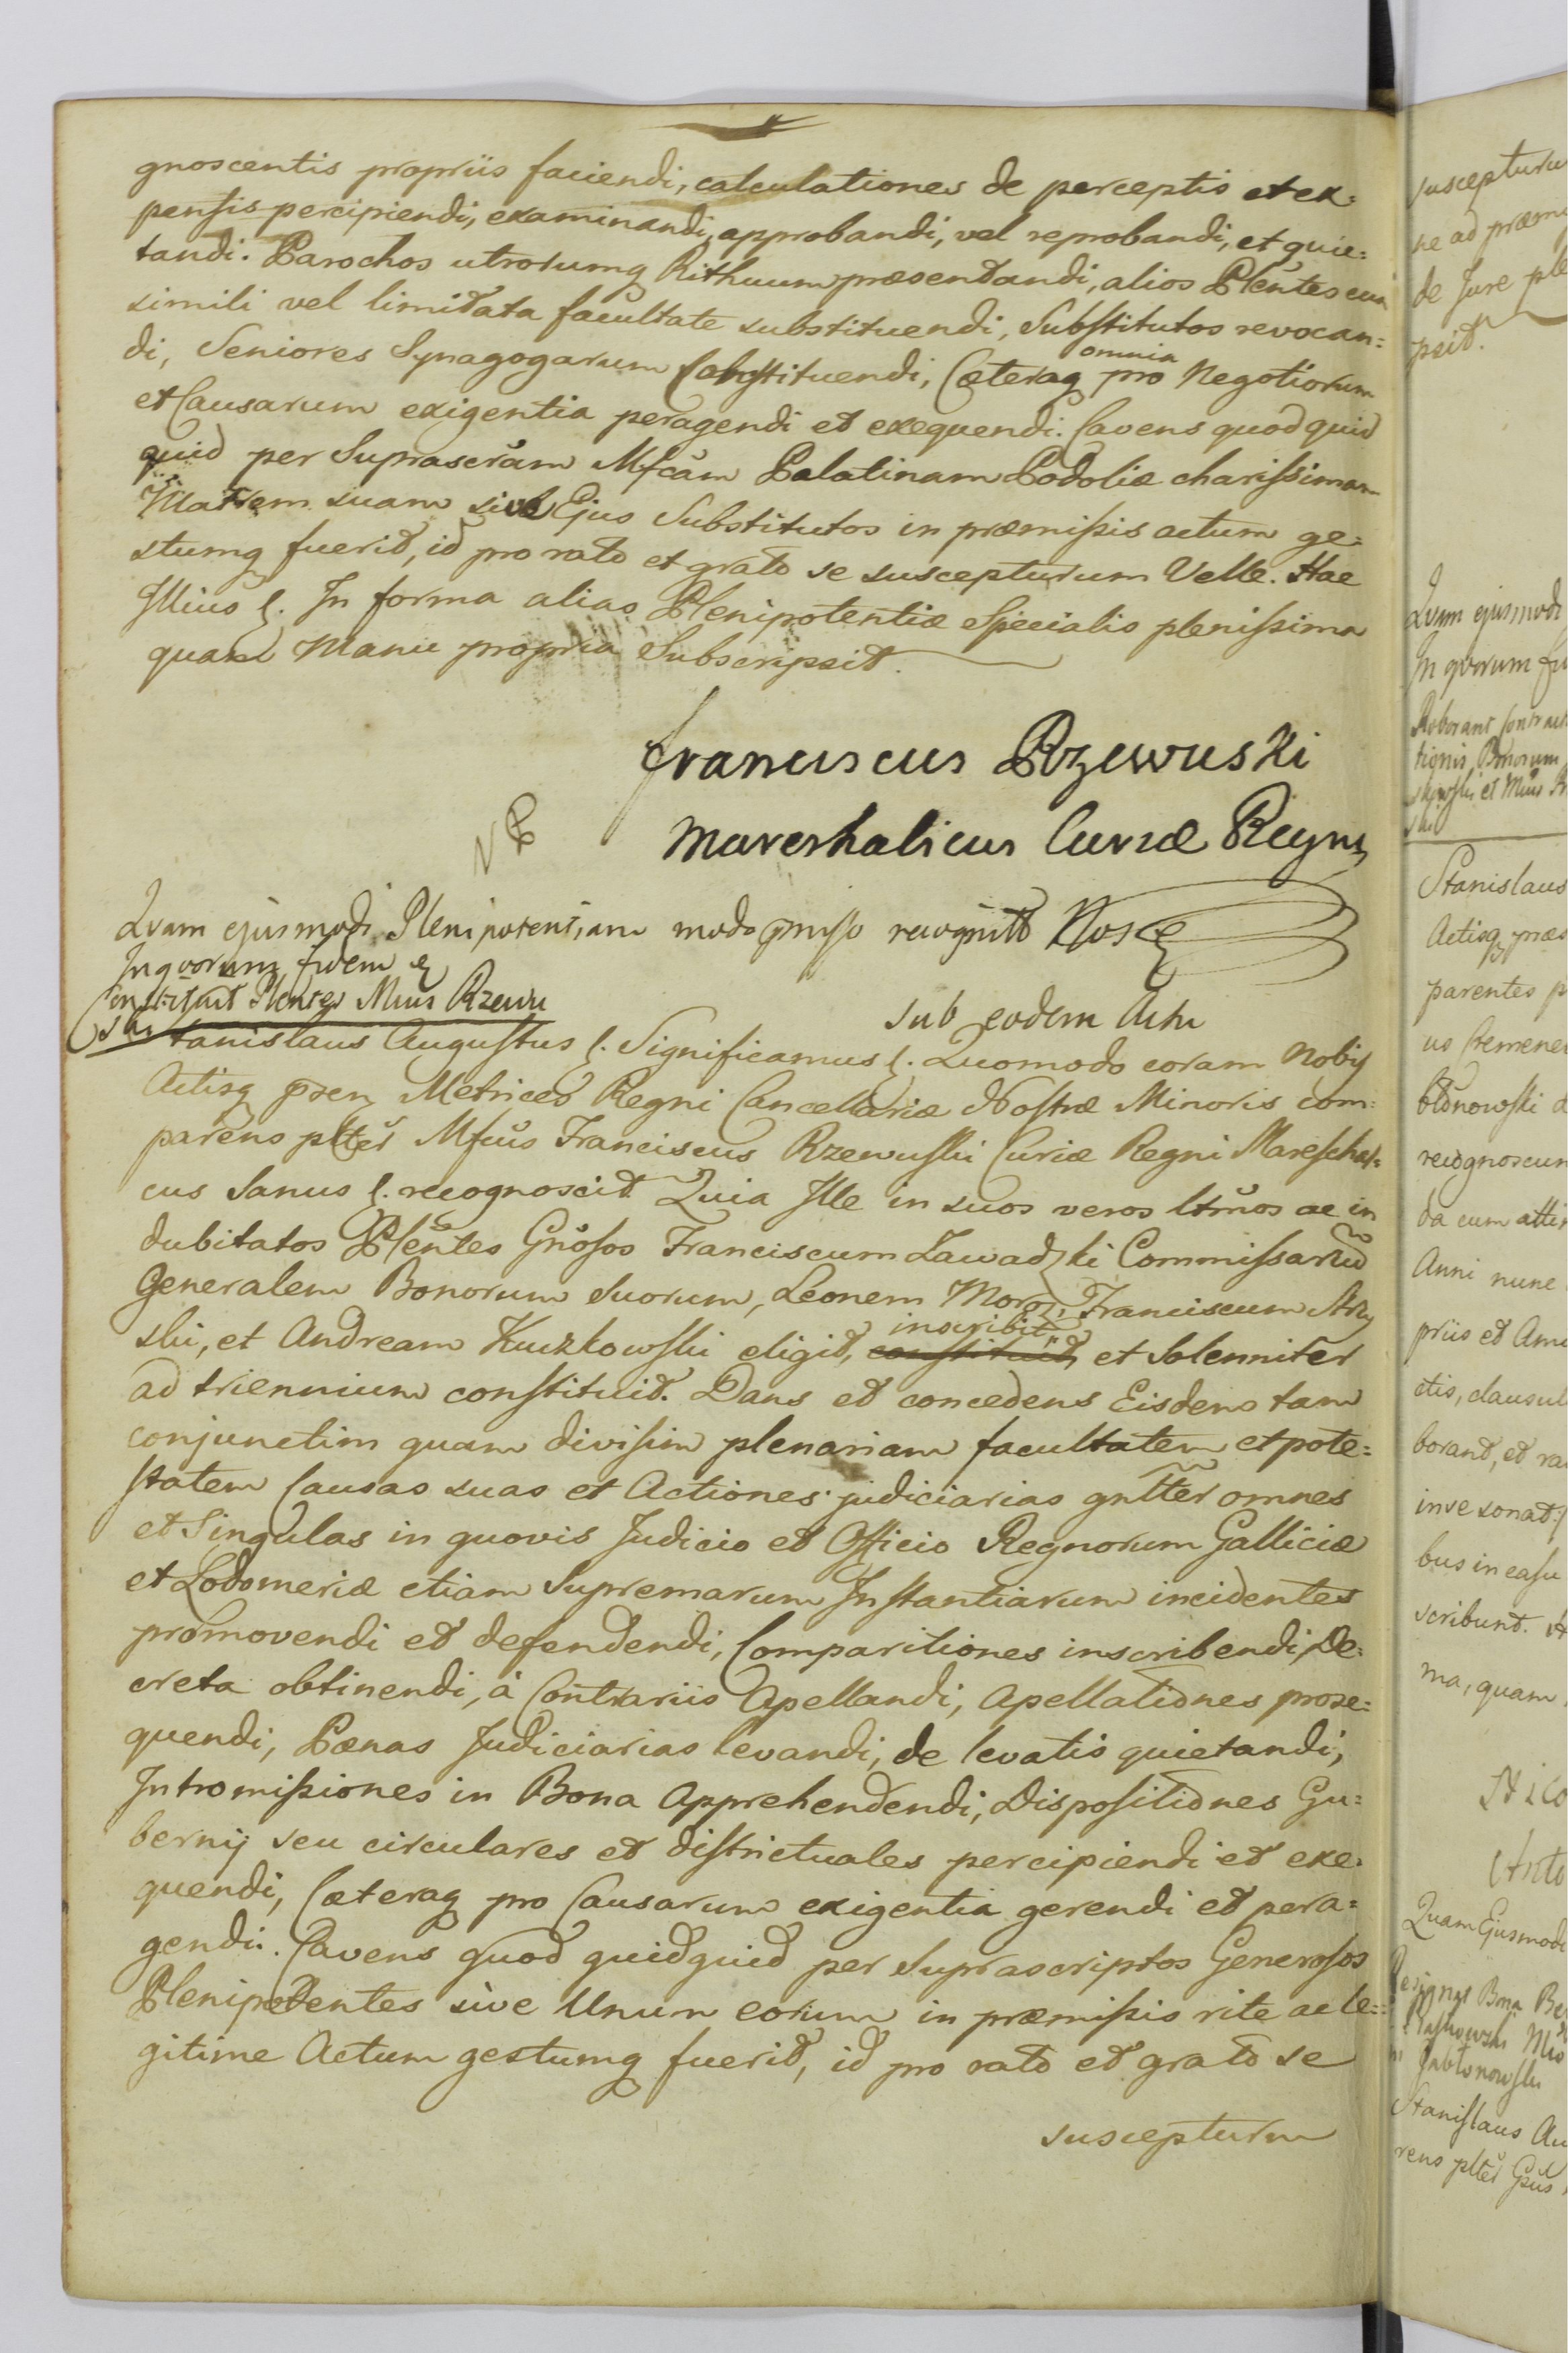 gnoscentis propriis faciendi, calculationes de perceptis et ex:
pensis percipiendi, examinandi, approbandi, vel reprobandi, et quie:
tandi. Parochos utrorumq Rithuum præsentandi, alios Plentes cum
simili vel limitata facultate substituendi, Substitutos revocan:
di, Seniores Synagogarum Constituendi, Cæteraq omnia pro Negotiorum
et Causarum exigentia peragendi et exequendi. Cavens quod quid
quid per Suprascram Mfcam Palatinam Podoliæ charissimam
Matrem suam sive Ejus Substitutos in præmissis actum ge:
stumq fuerit, id pro rato et grato se suscepturum Velle. Hac
Illius &. In forma alias Plenipotentiæ Specialis plenissima
quam Manu propria Subscripsit.
Franciscus Rzewuski
Mareshalicus Curiæ Regni
Qvam ejusmodi Plenipotentiam modo pmisso recognit Nos
Inqvorum fidem
Constituit Plentes Mcus Rzewu
ski
sub eodem Actu
Stanislaus Augustus &. Significamus &. Quomodo coram Nobis
Actisq præn Metrices Regni Cancellariæ Nostræ Minoris com:
parens plter Mfcus Franciscus Rzewuski Curiæ Regni Mareschal:
cus Sanus &. recognoscit Quia Ille in suos veros ltmos ac in
dubitatos Plentes Gnosos Franciscum Zawadzki Commissarium
Generalem Bonorum Suorum, Leonem Moroz, Franciscum Strzy
ski, et Andream Kuczkowski eligit, inscribit constituit et Solenniter
ad triennium constituit. Dans et concedens Eisdem tam
conjunctim quam divisim plenariam facultatem et pote:
statem Causas suas et Actiones judiciarias gnlter omnes
et Singulas in quovis Judicio et Officio Regnorum Galliciæ
et Lodomeriæ etiam Supremarum Instantiarum incidentes
promovendi et defendendi, Comparitiones inscribendi, De:
creta obtinendi, à Contrariis Apellandi, Apellationes prose:
quendi, Pænas Judiciarias levandi, de levatis quietandi,
Intromissiones in Bona Apprehendendi, Dispositiones Gu:
bernij seu circulares et districtuales percipiendi et exe:
quendi, Cæteraq pro Causarum exigentia gerendi et pera:
gendi. Cavens quod quidquid per Suprascriptos Generosos
Plenipotentes sive Unum eorum in præmissis rite ac le:
gitime Actum gestumq fuerit, id pro rato et grato se
suscepturum